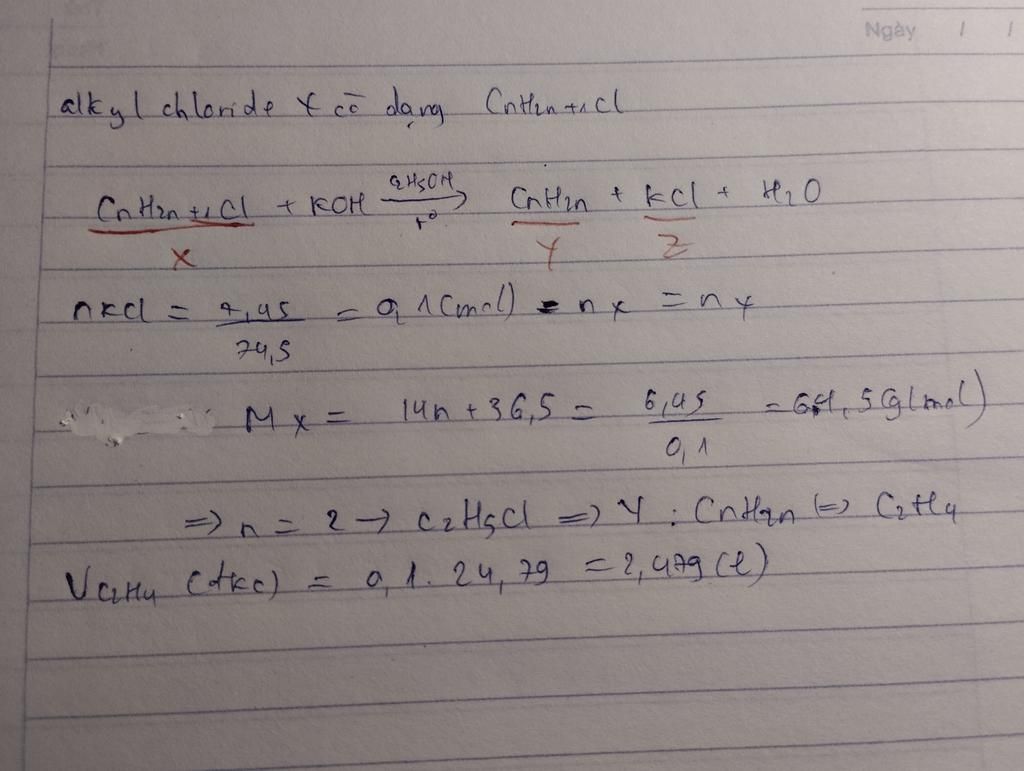 Ngày / /
alkyl chloride X có dạng CnH2n+1Cl
CnH2n+1Cl + KOH C2H5OH→ t° CnH2n + KCl + H2O
X Y Z
nKCl = 7,45/74,5 = 0,1 (mol) = nX = nY
MX = 14n + 36,5 = 6,45/0,1 = 64,5 (g/mol)
=> n = 2 → C2H5Cl => Y : CnH2n (=> C2H4
VC2H4 (đkc) = 0,1. 24,79 = 2,479 (l)